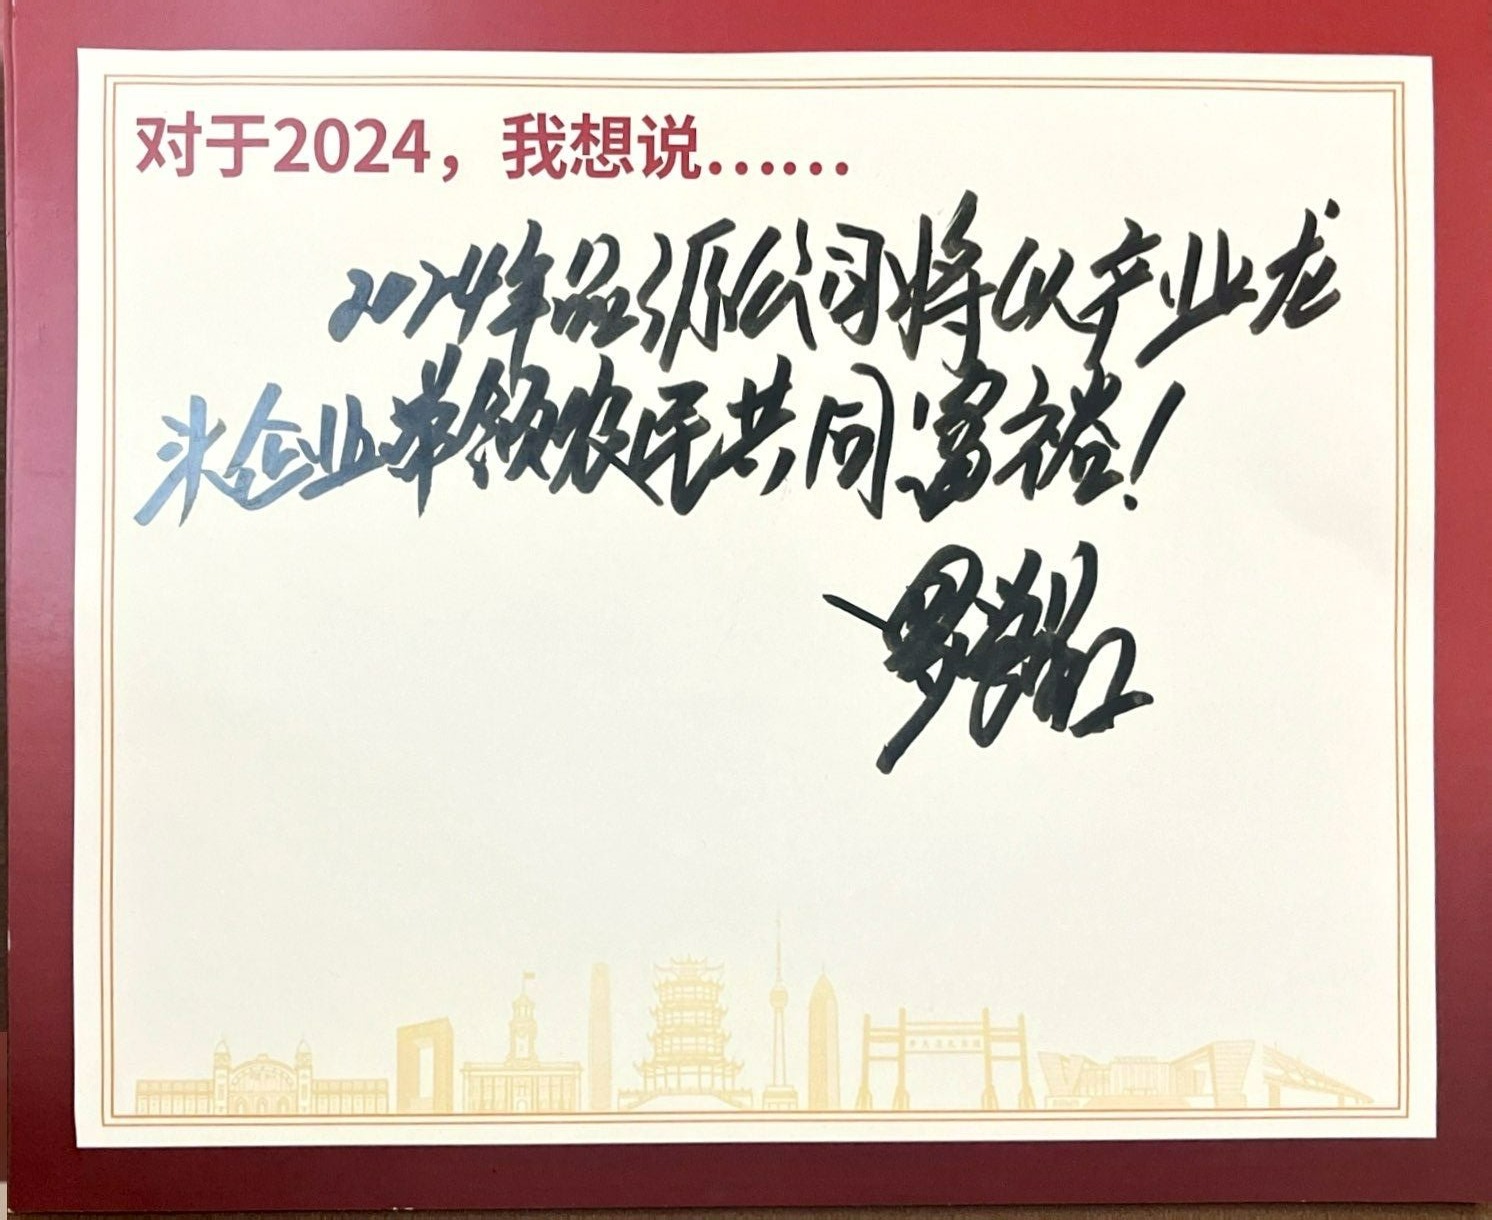 对于2024，我想说……
2024年品源公司将以产业龙
头企业带领农民共同富裕！